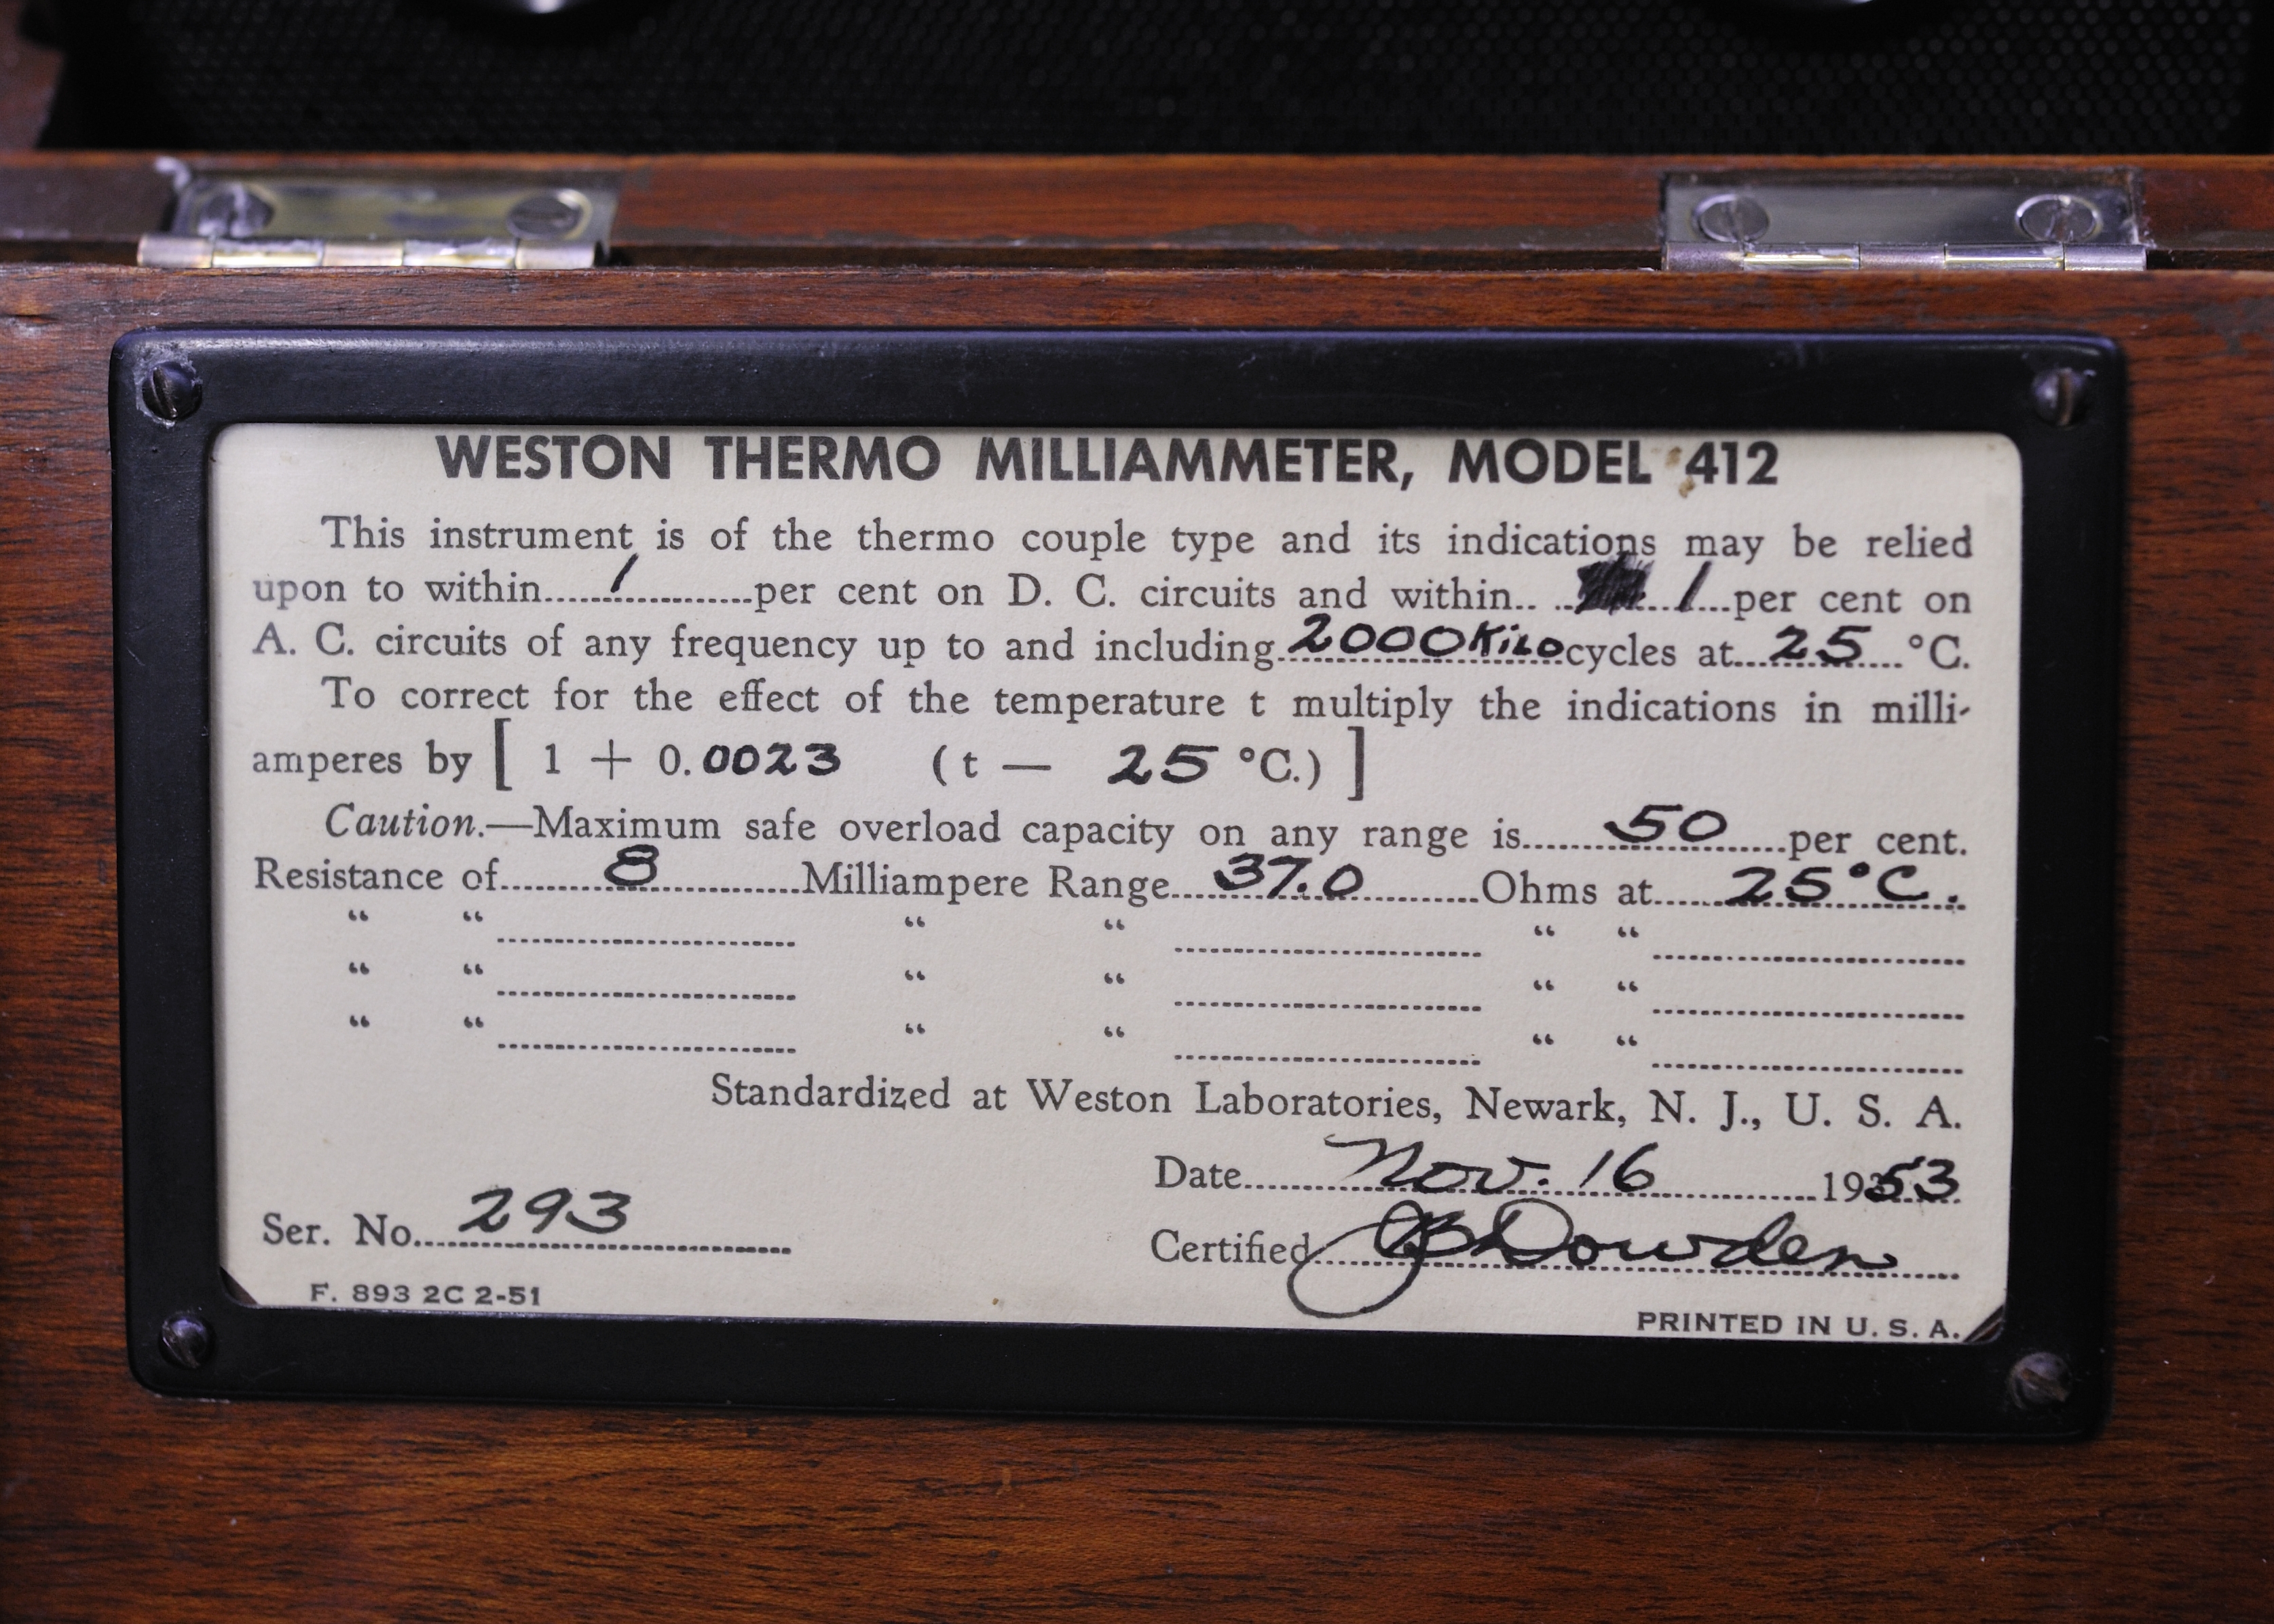 WESTON THERMO MILLIAMMETER, MODEL 412
This instrument is of the thermo couple type and its indications may be relied
upon to within......1......per cent on D. C. circuits and within.. .. 1...per cent on
A. C. circuits of any frequency up to and including 2000 Kilocycles at...25...°C.
To correct for the effect of the temperature t multiply the indications in milli-
amperes by [ 1 + 0.0023 (t — 25 °C.) ]
Caution.—Maximum safe overload capacity on any range is......50......per cent.
Resistance of......8......Milliampere Range...37.0......Ohms at......25°C.
“ “ ...... “ “ ...... “ “ ......
“ “ ...... “ “ ...... “ “ ......
“ “ ...... “ “ ...... “ “ ......
Standardized at Weston Laboratories, Newark, N. J., U. S. A.
Date......Nov. 16......1953
Ser. No...293......
Certified...JB Dowden...
F. 893 2C 2-51
PRINTED IN U. S. A.